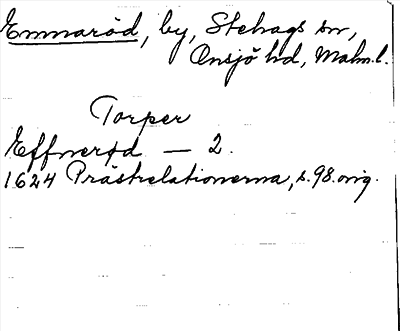 Emmaröd, by, Stehags sn,
Onsjö hd, Malm.l.
Torper
Effnerød — 2.
1624 Prästrelationerna, s. 98. orig.